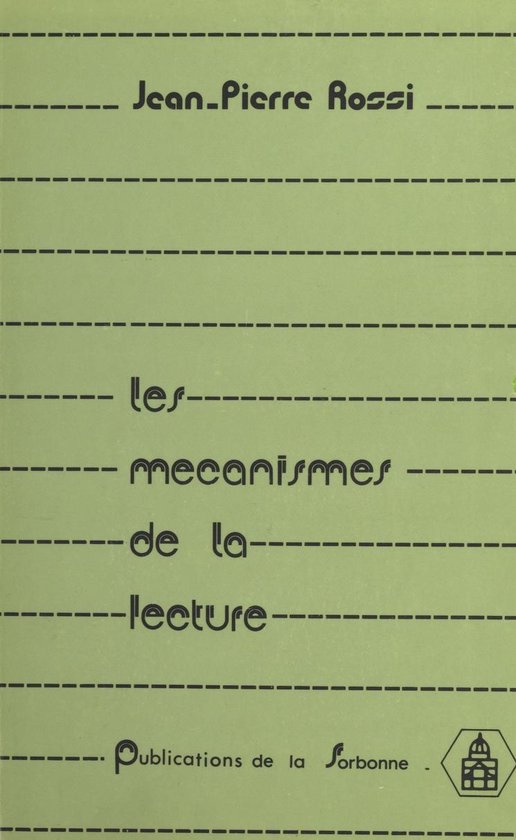 Jean-Pierre Rossi
les
mecanismes
de la
lecture
Publications de la Sorbonne